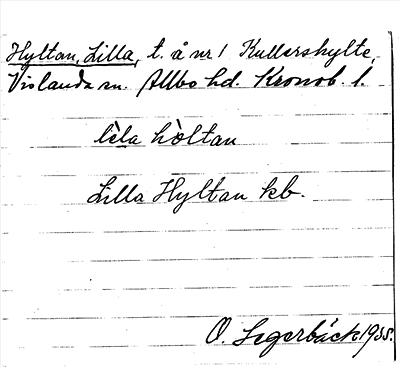 Hyltan, Lilla, t. å nr 1 Kullerskylte,
Vislanda sn. Allbo hd. Kronob. l.
lèla hòltan
Lilla Hyltan kb.
O. Segerbäck 1935.